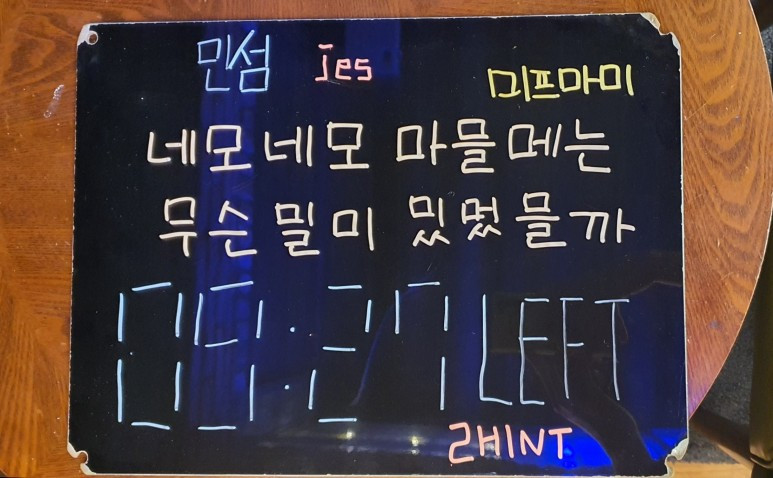 민섬 Jes 미프마미
네모네모 마믈메는
무슨 밀미 밌멌믈까
05:27 LEFT
2HINT